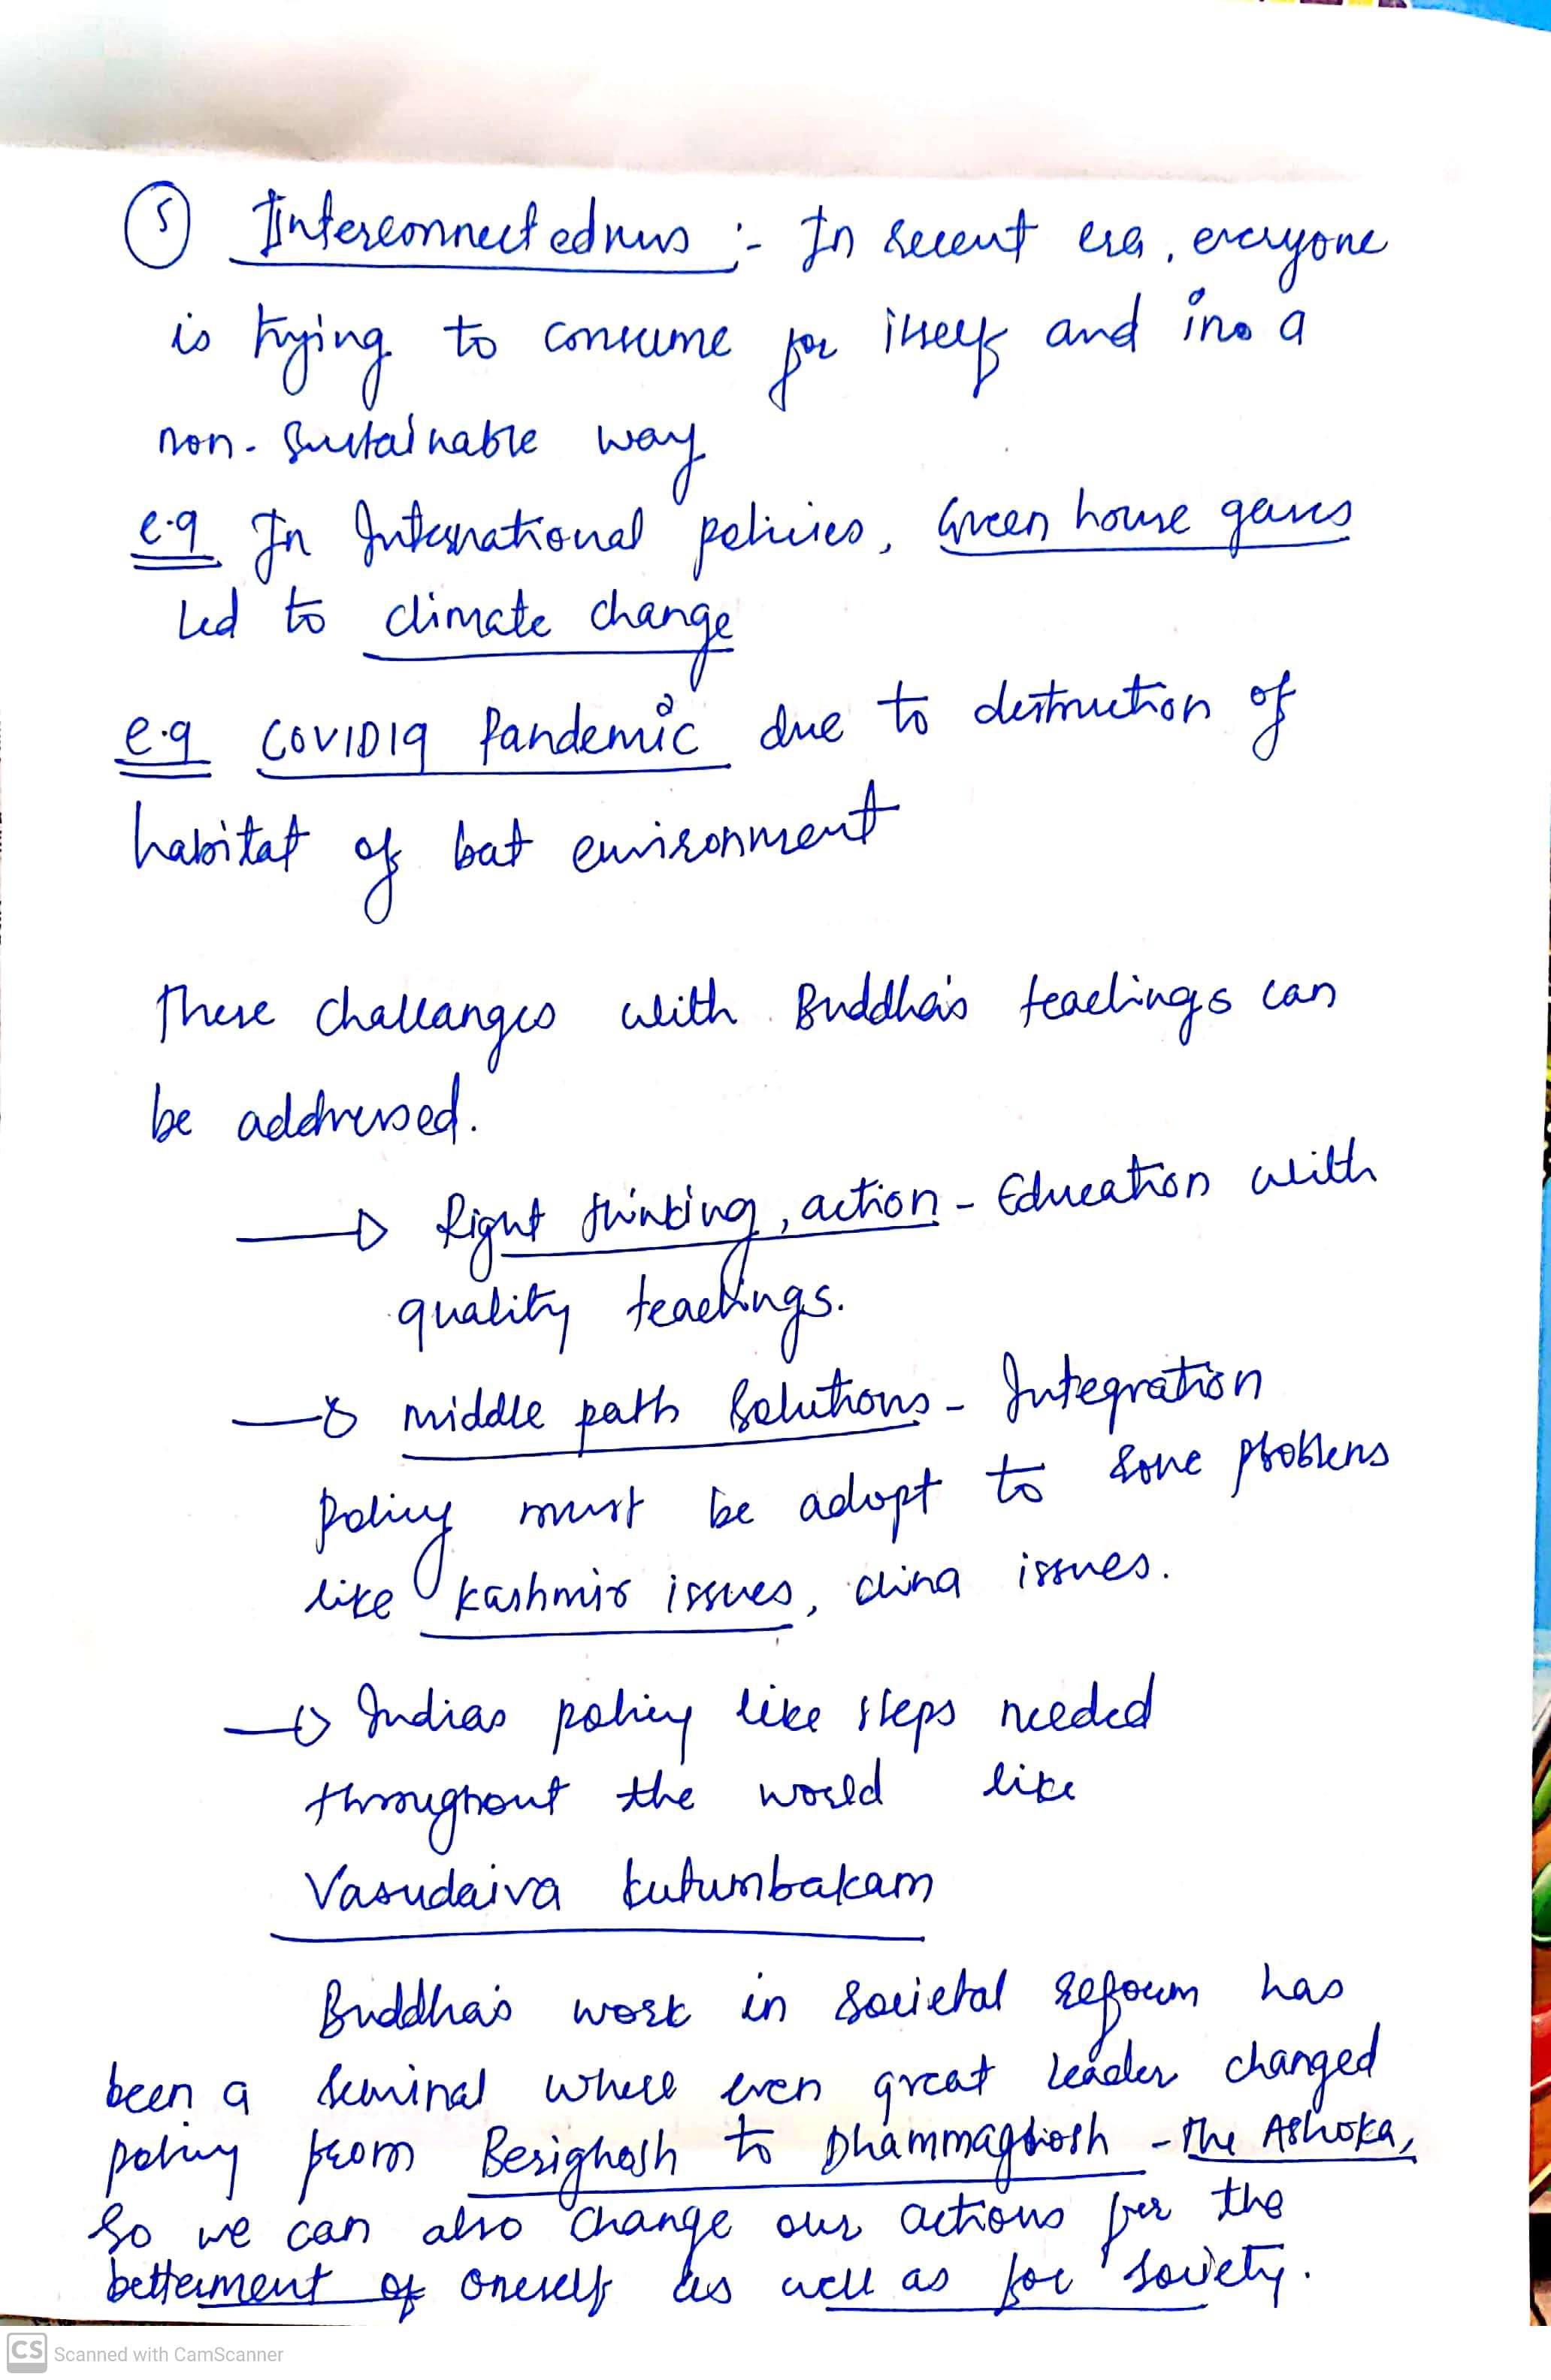 (5) Interconnectedness :- In recent era, everyone
is trying to consume for itself and in a
non-sustainable way
e.g In International policies, Green house gases
led to climate change
e.g COVID19 Pandemic due to destruction of
habitat of bat environment
These challanges with Buddha's teachings can
be addressed.
→ Right thinking, action - Education with
quality teachings.
→ middle path solutions - Integration
policy must be adopt to solve problems
like Kashmir issues, china issues.
→ Indias policy like steps needed
throughout the world like
Vasudaiva kutumbakam
Buddha's work in societal reform has
been a seminal where even great leader changed
policy from Berighosh to Dhammaghosh - The Ashoka,
So we can also change our actions for the
betterment of oneself as well as for society.
CS Scanned with CamScanner